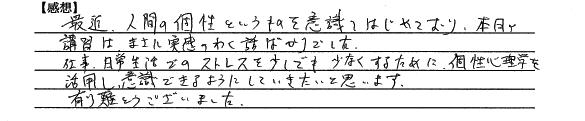 【感想】
最近、人間の個性というものを意識しはじめており、本日の
講習は、まさに実感のわく話ばかりでした。
仕事、日常生活でのストレスを少しでも少なくするために、個性心理学を
活用し、意識できるようにしていきたいと思います。
有り難とうございました。